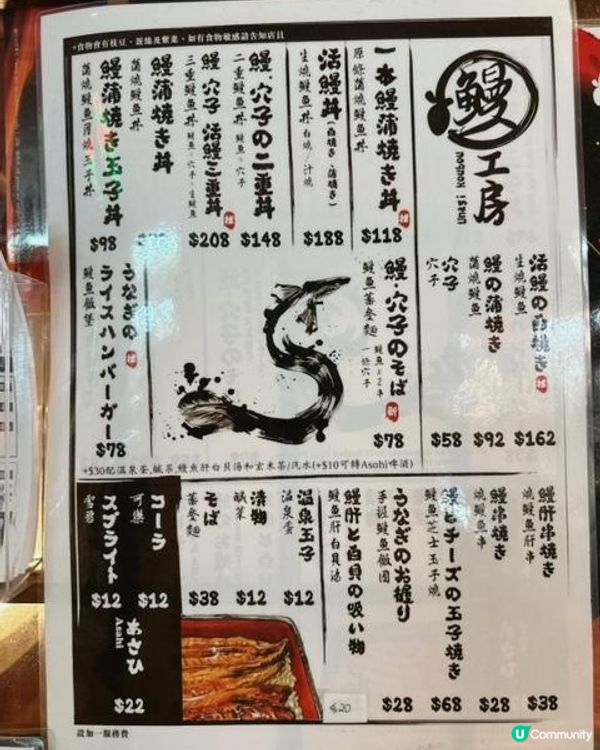 *食物會有枝豆、蛋類及紫菜、如有食物敏感請告知店員
鰻
工房
UNAGI KOUBOU
一本鰻蒲焼き丼
原條蒲燒鰻魚丼
推
$118
活鰻丼(白焼き・蒲焼き)
生燒鰻魚丼 白燒/汁燒
$188
鰻・穴子の二重丼
二重鰻魚丼 鰻魚・穴子
$148
鰻 穴子 活鰻三重丼
三重鰻魚丼 鰻魚・穴子・生鰻魚
推
$208
鰻蒲焼き丼
蒲燒鰻魚丼
鰻蒲焼き玉子丼
蒲燒鰻魚厚燒玉子丼
$98
活鰻の白焼き
生燒鰻魚
推
$162
鰻の蒲焼き
蒲燒鰻魚
$92
穴子
穴子
$58
鰻・穴子のそば
鰻魚蕎麥麵 鰻魚x2串 一條穴子
新
$78
うなぎの
ライスハンバーガー
鰻魚飯堡
推
$78
+$30配溫泉蛋,鹹菜,鰻魚肝白貝湯和玄米茶/汽水(+$10可轉Asahi啤酒)
鰻肝串焼き
燒鰻魚肝串
$38
鰻串焼き
燒鰻魚串
$28
鰻とチーズの玉子焼き
鰻魚芝士玉子燒
$68
うなぎのお握り
手握鰻魚飯團
$28
鰻肝と白貝の吸い物
鰻魚肝白貝湯
$20
温泉玉子
溫泉蛋
$12
漬物
鹹菜
$12
そば
蕎麥麵
$38
コーラ
可樂
$12
スプライト
雪碧
$12
あさひ
Asahi
$22
設加一服務費
U Community